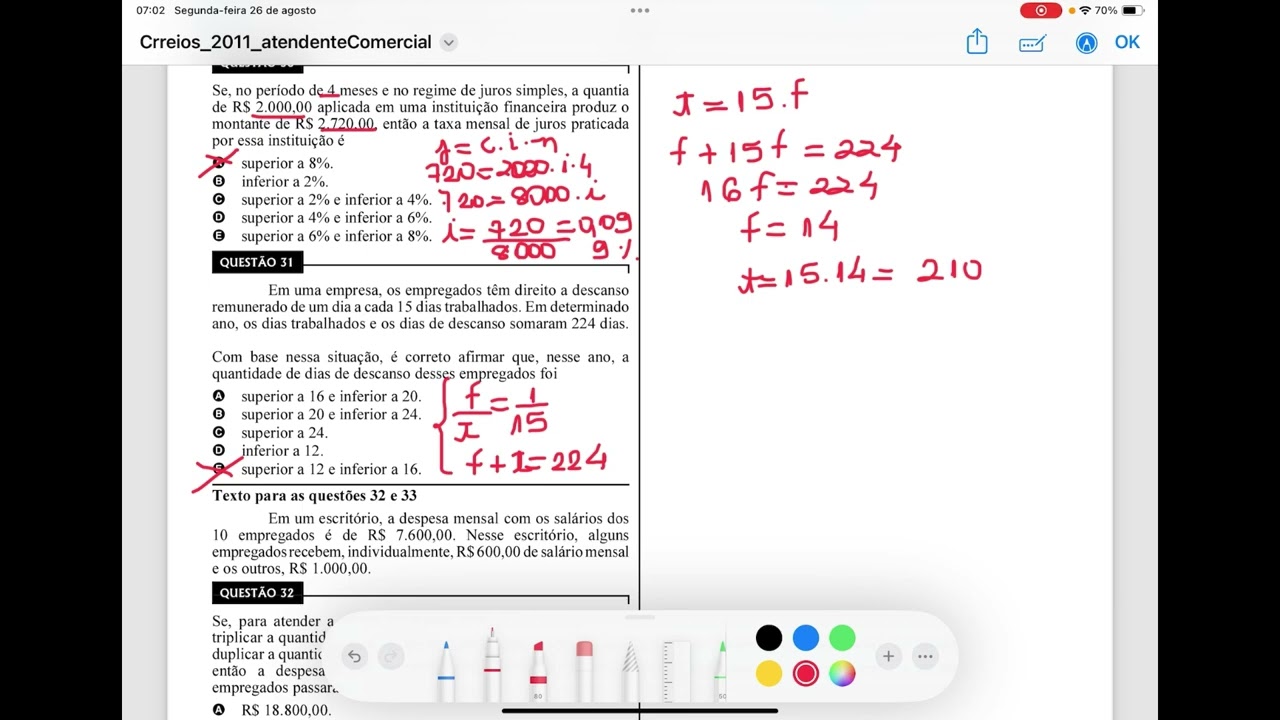 07:02 Segunda-feira 26 de agosto
70%
Crreios_2011_atendenteComercial
OK
Se, no período de 4 meses e no regime de juros simples, a quantia
de R$ 2.000,00 aplicada em uma instituição financeira produz o
montante de R$ 2.720,00, então a taxa mensal de juros praticada
por essa instituição é
superior a 8%.
B inferior a 2%.
C superior a 2% e inferior a 4%.
D superior a 4% e inferior a 6%.
E superior a 6% e inferior a 8%.
J = C.i.n
720=2000.i.4
720=8000.i
i=720/8000=0,09
9%.
QUESTÃO 31
Em uma empresa, os empregados têm direito a descanso
remunerado de um dia a cada 15 dias trabalhados. Em determinado
ano, os dias trabalhados e os dias de descanso somaram 224 dias.
Com base nessa situação, é correto afirmar que, nesse ano, a
quantidade de dias de descanso desses empregados foi
A superior a 16 e inferior a 20.
B superior a 20 e inferior a 24.
C superior a 24.
D inferior a 12.
E superior a 12 e inferior a 16.
f/t=1/15
f+t=224
Texto para as questões 32 e 33
Em um escritório, a despesa mensal com os salários dos
10 empregados é de R$ 7.600,00. Nesse escritório, alguns
empregados recebem, individualmente, R$ 600,00 de salário mensal
e os outros, R$ 1.000,00.
QUESTÃO 32
Se, para atender a
triplicar a quantid
duplicar a quantic
então a despesa
empregados passar
A R$ 18.800,00.
t=15.f
f+15f=224
16f=224
f=14
t=15.14= 210
80
50